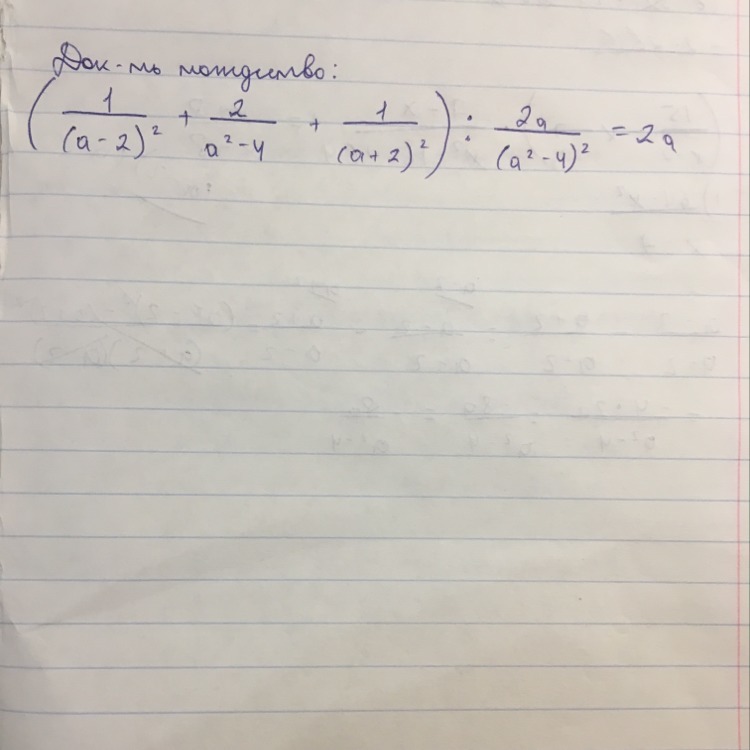 Док-ть тождество:
(1/(a-2)² + 2/a²-4 + 1/(a+2)²) : 2a/(a²-4)² = 2a